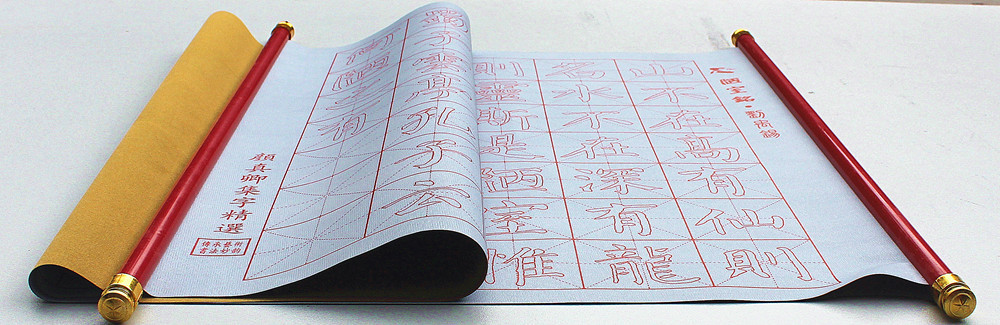 陋室銘·劉禹錫
山不在高有仙則
名水不在深有龍
則靈斯是陋室惟
蜀子雲亭孔子云
何陋之有
顏真卿集字精選
傳承藝術
書法妙韵